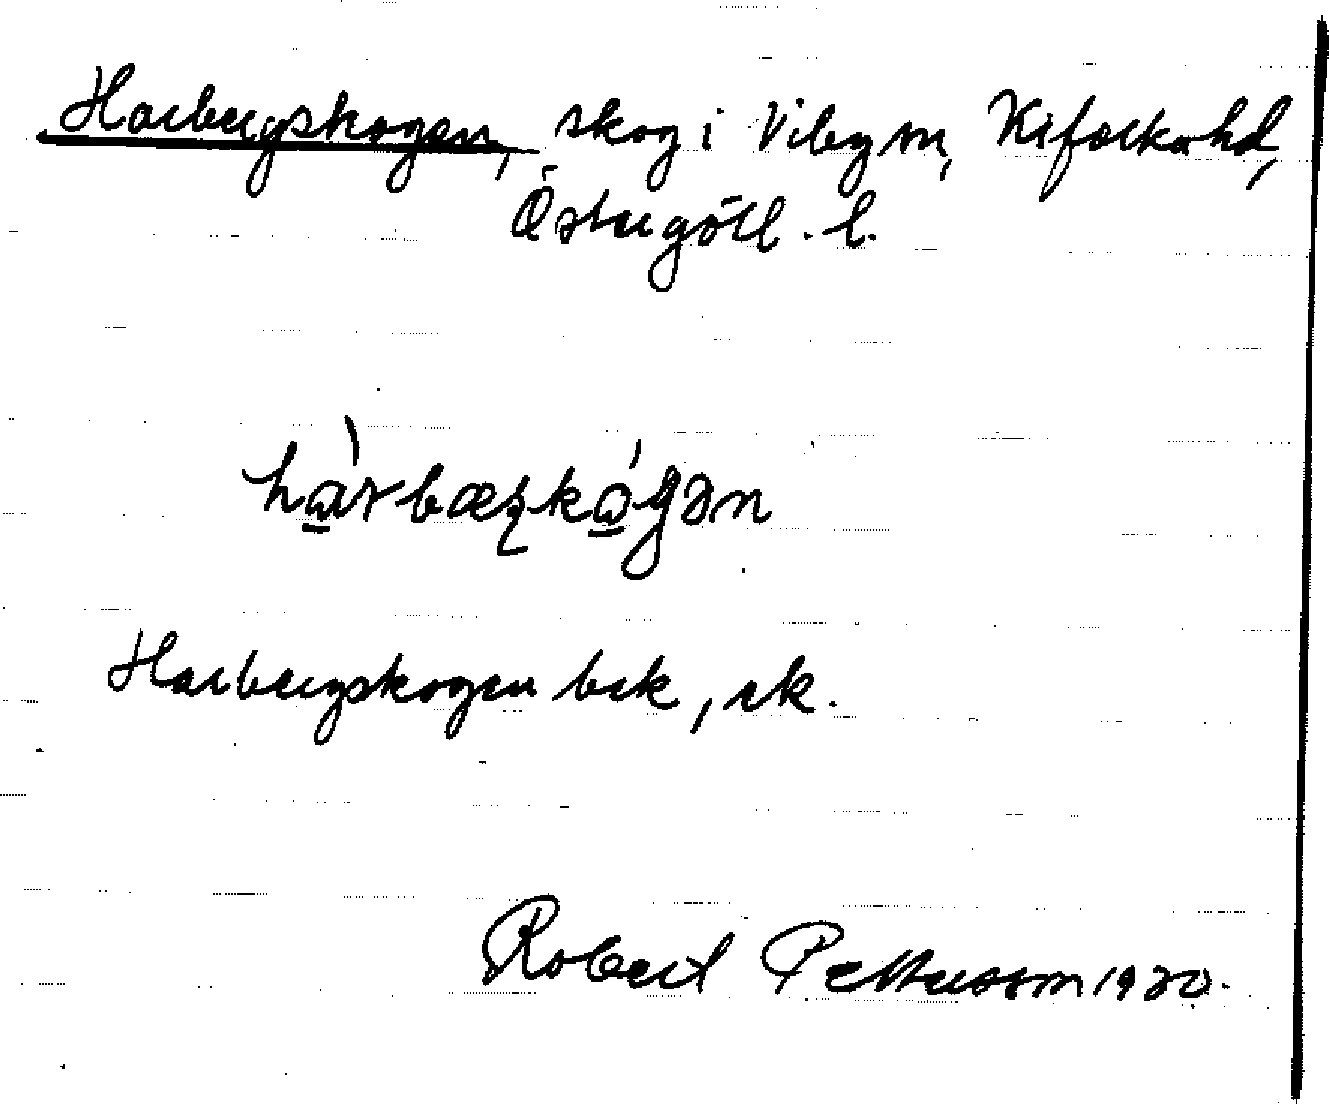 Harbergskogen, skog i Viby sn, Kifvarka hd,
Östergötl. l.
hàrbæʂkógən
Harbergskogen bek, ek.
Robert Pettersson 1920.